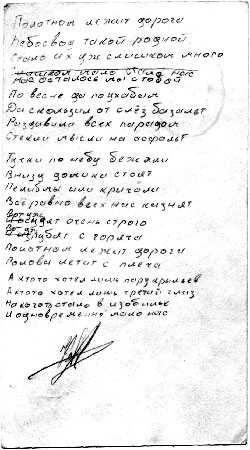 Полотном лежит дорога
Небосвод такой родной
Стало их уж слишком много
нас осталось мы с тобой
По весне да по ухабам
Да скользил от слёз базальт
Раздавили всех парадом
Стекли мысли на асфальт
Тучки по небу бежали
Внизу домики стоят
Не
или кричали
Всё равно всех нас казнят
очень строго
с горяча
Полотном лежит дорога
Голова летит с плеча
А кто то хотел лишь пару крыльев
А кто то хотел лишь третий глаз
Но кого то стало в изобилие
И одновременно мало нас